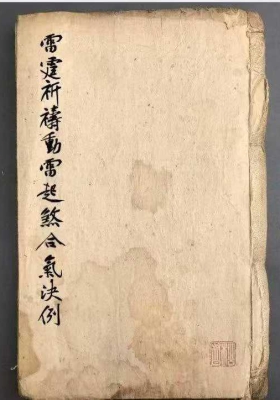 雷霆祈禱動雷起煞合氣決例